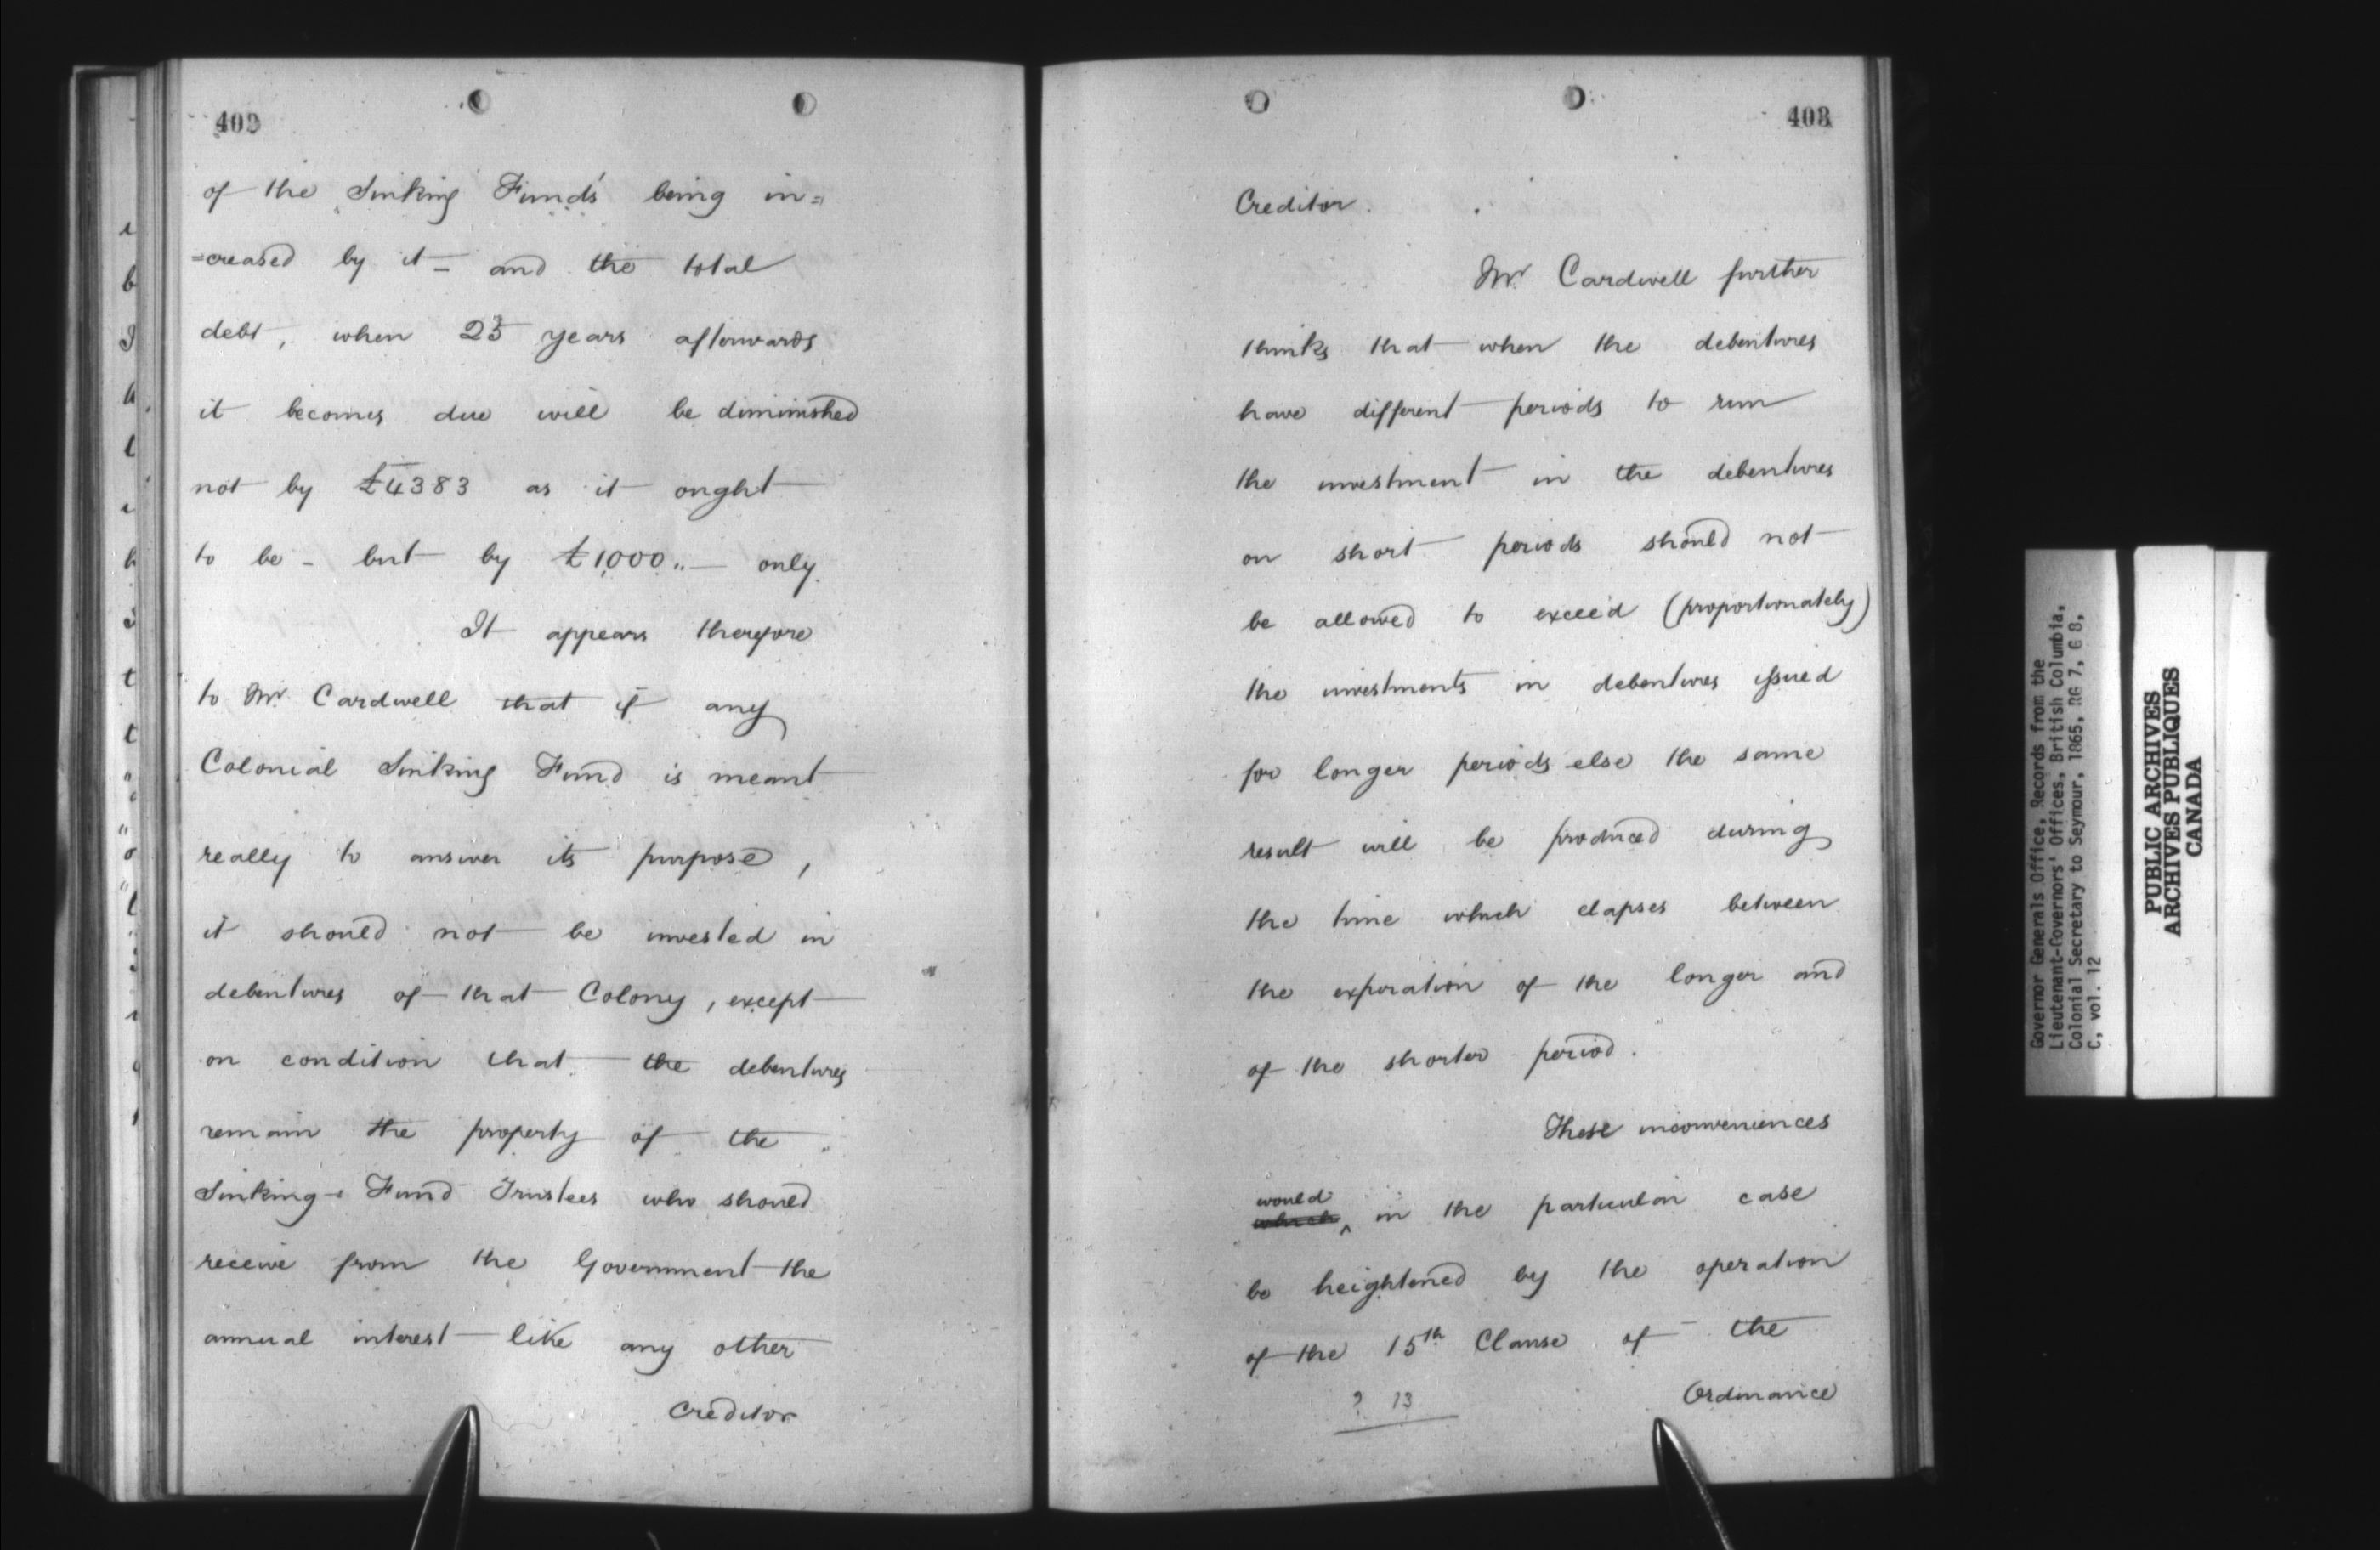 402
of the Sinking Fund's being in=
=creased by it – and the total
debt, when 25 years afterwards
it becomes due will be diminished
not by £4383 as it ought
to be – but by £1,000.. — only.
It appears therefore
to Mr Cardwell that if any
Colonial Sinking Fund is meant
really to answer its purpose,
it should not be invested in
debentures of that Colony, except
on condition that the debentures
remain the property of the
Sinking Fund Trustees who should
receive from the Government the
annual interest like any other
Creditor
403
Creditor.
Mr Cardwell further
thinks that when the debentures
have different periods to run
the investment in the debentures
on short periods should not
be allowed to exceed (proportionately)
the investments in debentures issued
for longer periods else the same
result will be produced during
the time which elapses between
the expiration of the longer and
of the shorter period.
These inconveniences
would
which ^ in the particular case
be heightened by the operation
of the 15th Clause of the
? 13
Ordinance
Governor Generals Office, Records from the
Lieutenant-Governors' Offices, British Columbia,
Colonial Secretary to Seymour, 1865, RG 7, G 8,
C, vol. 12
PUBLIC ARCHIVES
ARCHIVES PUBLIQUES
CANADA